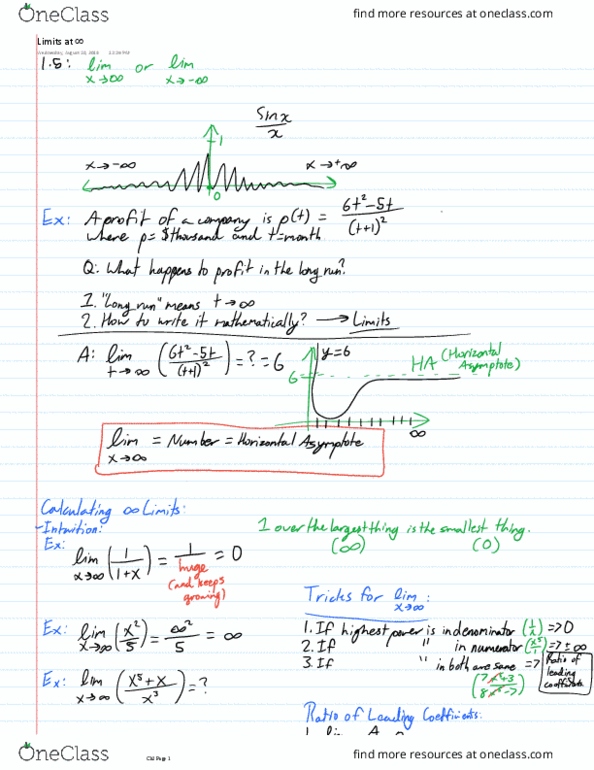 OneClass
find more resources at oneclass.com
Limits at ∞
Wednesday, August 22, 2018
1.5: lim x→∞ or lim x→-∞
Sinx/x
1
x→-∞ x→+∞
0
Ex: A profit of a company is p(t) = (6t²-5t)/(t+1)²
where p= $thousand and t=month
Q: What happens to profit in the long run?
1. "Long run" means t→∞
2. How to write it mathematically? → Limits
A: lim t→∞ ((6t²-5t)/(t+1)²) = ? = 6
y=6
6
HA (Horizontal Asymptote)
∞
lim x→∞ = Number = Horizontal Asymptote
Calculating ∞ Limits:
-Intuition:
1 over the largest thing is the smallest thing.
(∞) (0)
Ex: lim x→∞ (1/(1+x)) = 1/huge = 0
(and keeps growing)
Tricks for lim x→∞ :
Ex: lim x→∞ (x²/5) = ∞²/5 = ∞
1. If highest power is in denominator (1/x) => 0
2. If " in numerator (x⁵/1) => ±∞
3. If " in both are same => Ratio of leading coefficients
Ex: lim x→∞ ((x⁵+x)/x³) = ?
Ratio of Leading Coefficients:
OneClass
Page 1
find more resources at oneclass.com